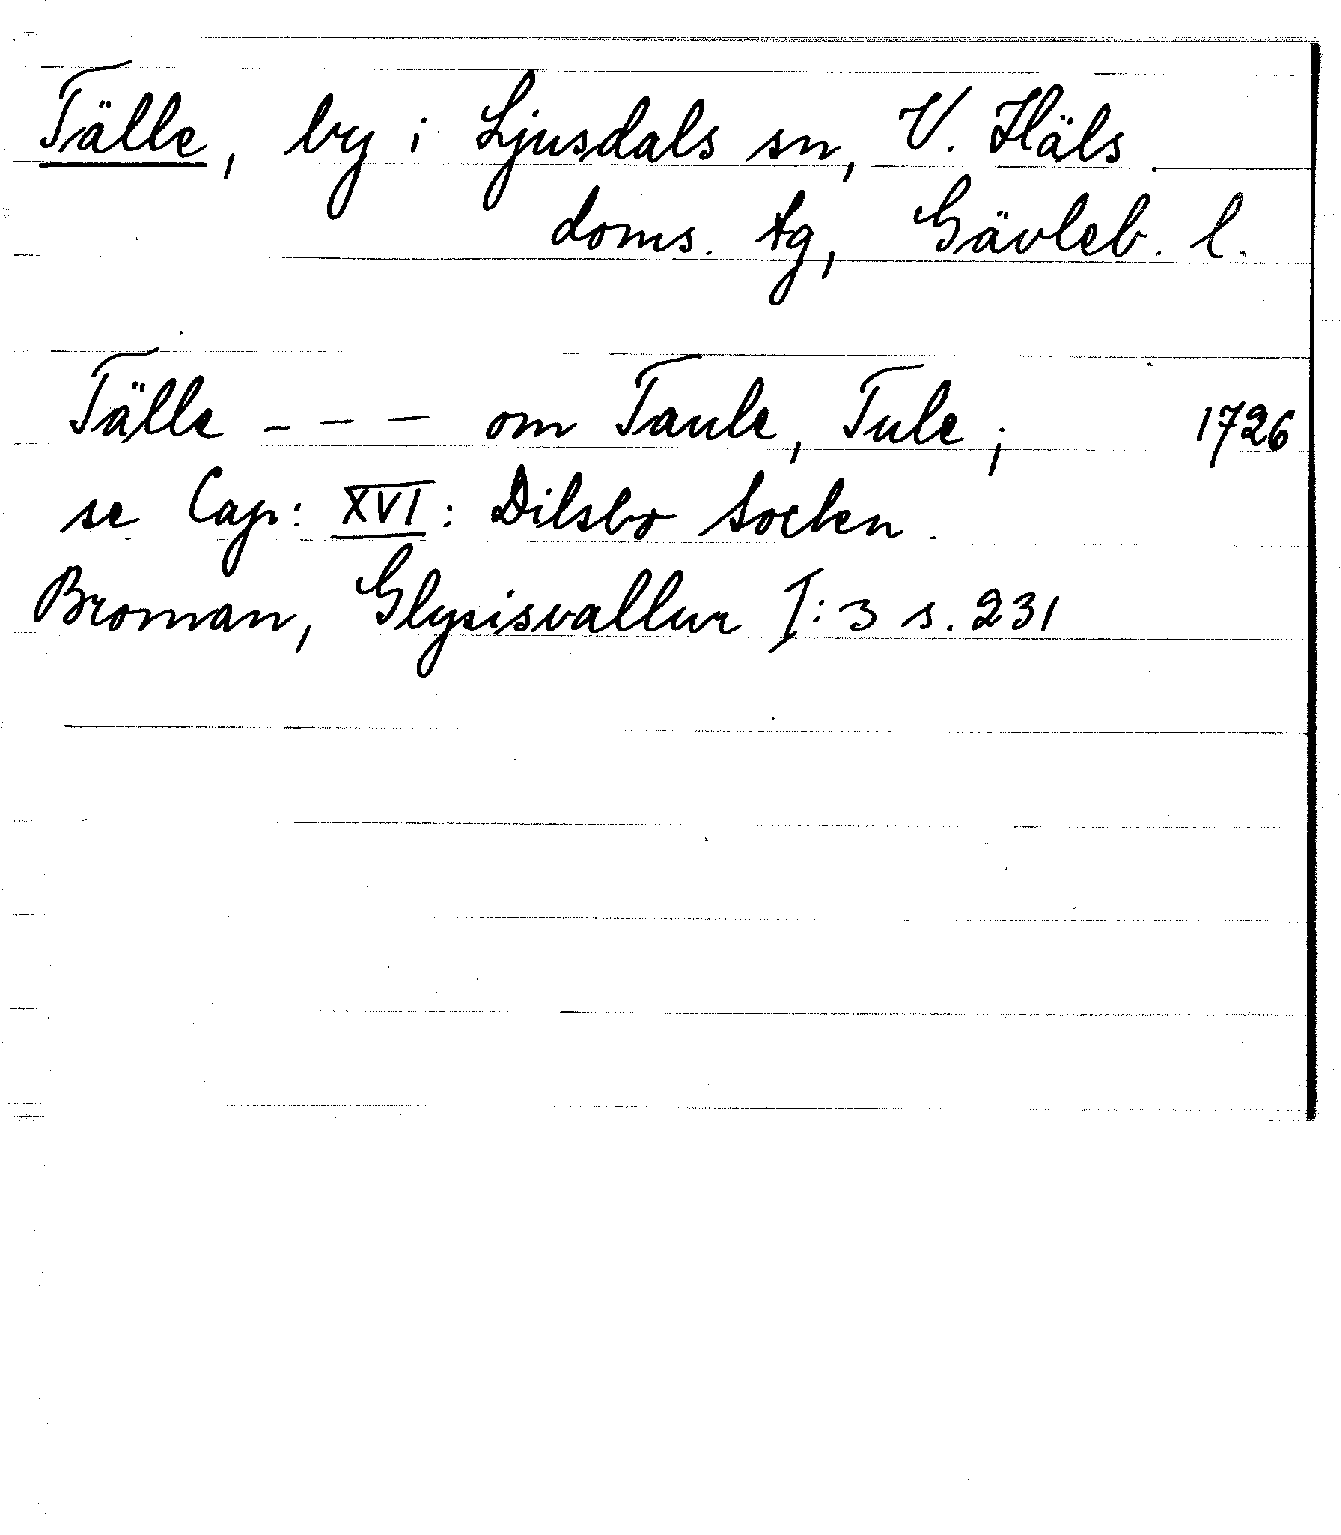 Tälle, by i Ljusdals sn, V. Häls
doms. tg, Gävleb. l.
Tälle - - - om Taule, Tule; 1726
se Cap: XVI: Dilsbo Socken.
Broman, Glysisvallur I:3 s. 231